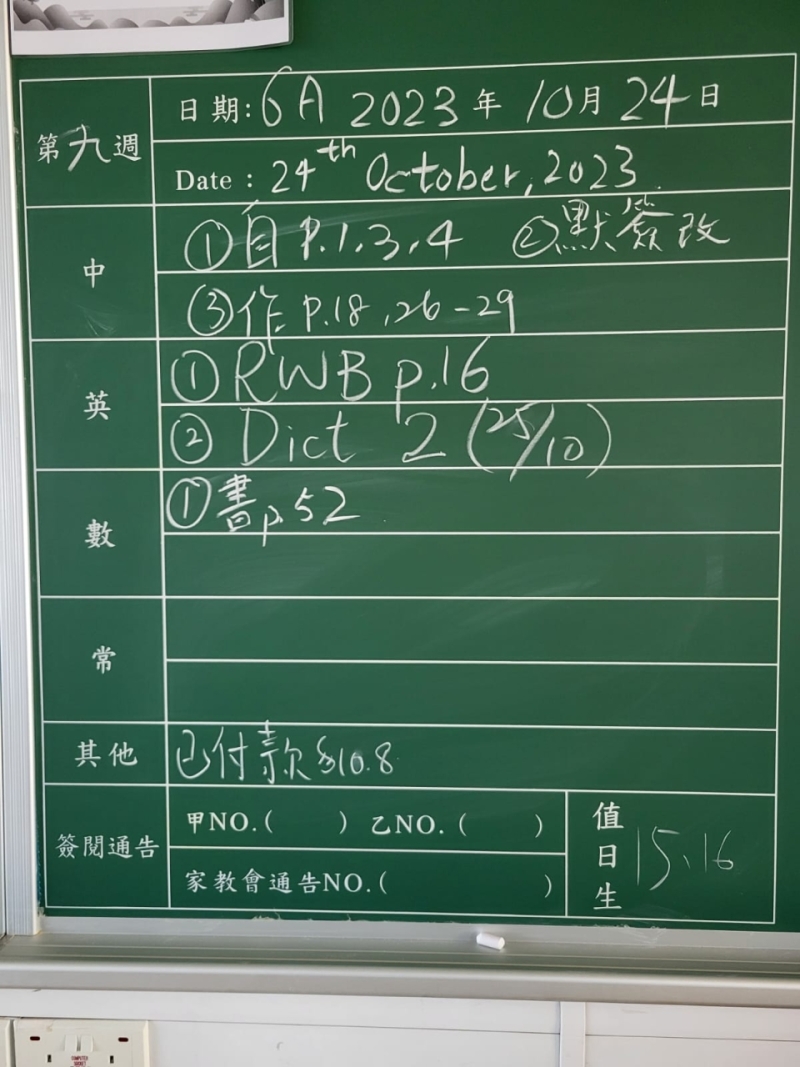 第九週
日期: 6A 2023年 10月24日
Date : 24th October, 2023.
中
①自 P.1,3,4 ②默簽改
③作 P.18,26-29
英
① RWB p.16
② Dict 2 (25/10)
數
①書p.52
常
其他
已付款$10.8
簽閱通告
甲NO.( ) 乙NO.( )
家教會通告NO.( )
值日生
15、16